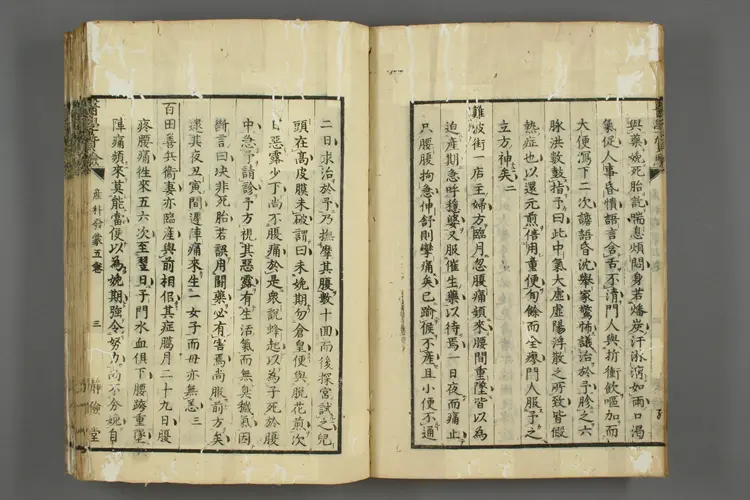 與藥娩死胎訖喘息煩悶身若燔炭汗淋漓如雨口渴
氣促人事昏憒語言含舌不清門人與抑衝飲嘔加而
大便瀉下二次譫語昏沈舉家驚怖議治於予胗之六
脉洪數鼓指予曰此中氣大虛虛陽浮散之所致皆假
熱症也以還元煎倍用重便旬餘而全瘳門人服予之
立方神矣二
難波街一店主婦方臨月忽腰痛頻來腰間重墜皆以為
迫產期急呼穩婆又服催生藥以待焉一日夜而痛止
只腰腹拘急伸舒則攣痛矣已踰候不產且小便不通
二日求治於予乃撫摩其腹數十回而後探宮試之兒
頭在高皮膜未破謂曰未娩期勿倉皇便與脫花煎次
日惡露少下尚不腹痛於是衆說蜂起以為子死於腹
中急予請診予方視其惡露有生活氣而無臭穢氣因
斷言曰决非死胎若誤用關藥必有害焉尚服前方矣
逮其夜丑寅間遽陣痛來生一女子而母亦無恙三
百田善兵衞妻亦臨產與前相侶其症臈月二十九日腹
疼腰痛徃來五六次至翌日子門水血俱下腰跨重墜
陣痛頻來莫能當便以為娩期強令努力尚不分娩自
產科發蒙五卷
三
靜儉堂